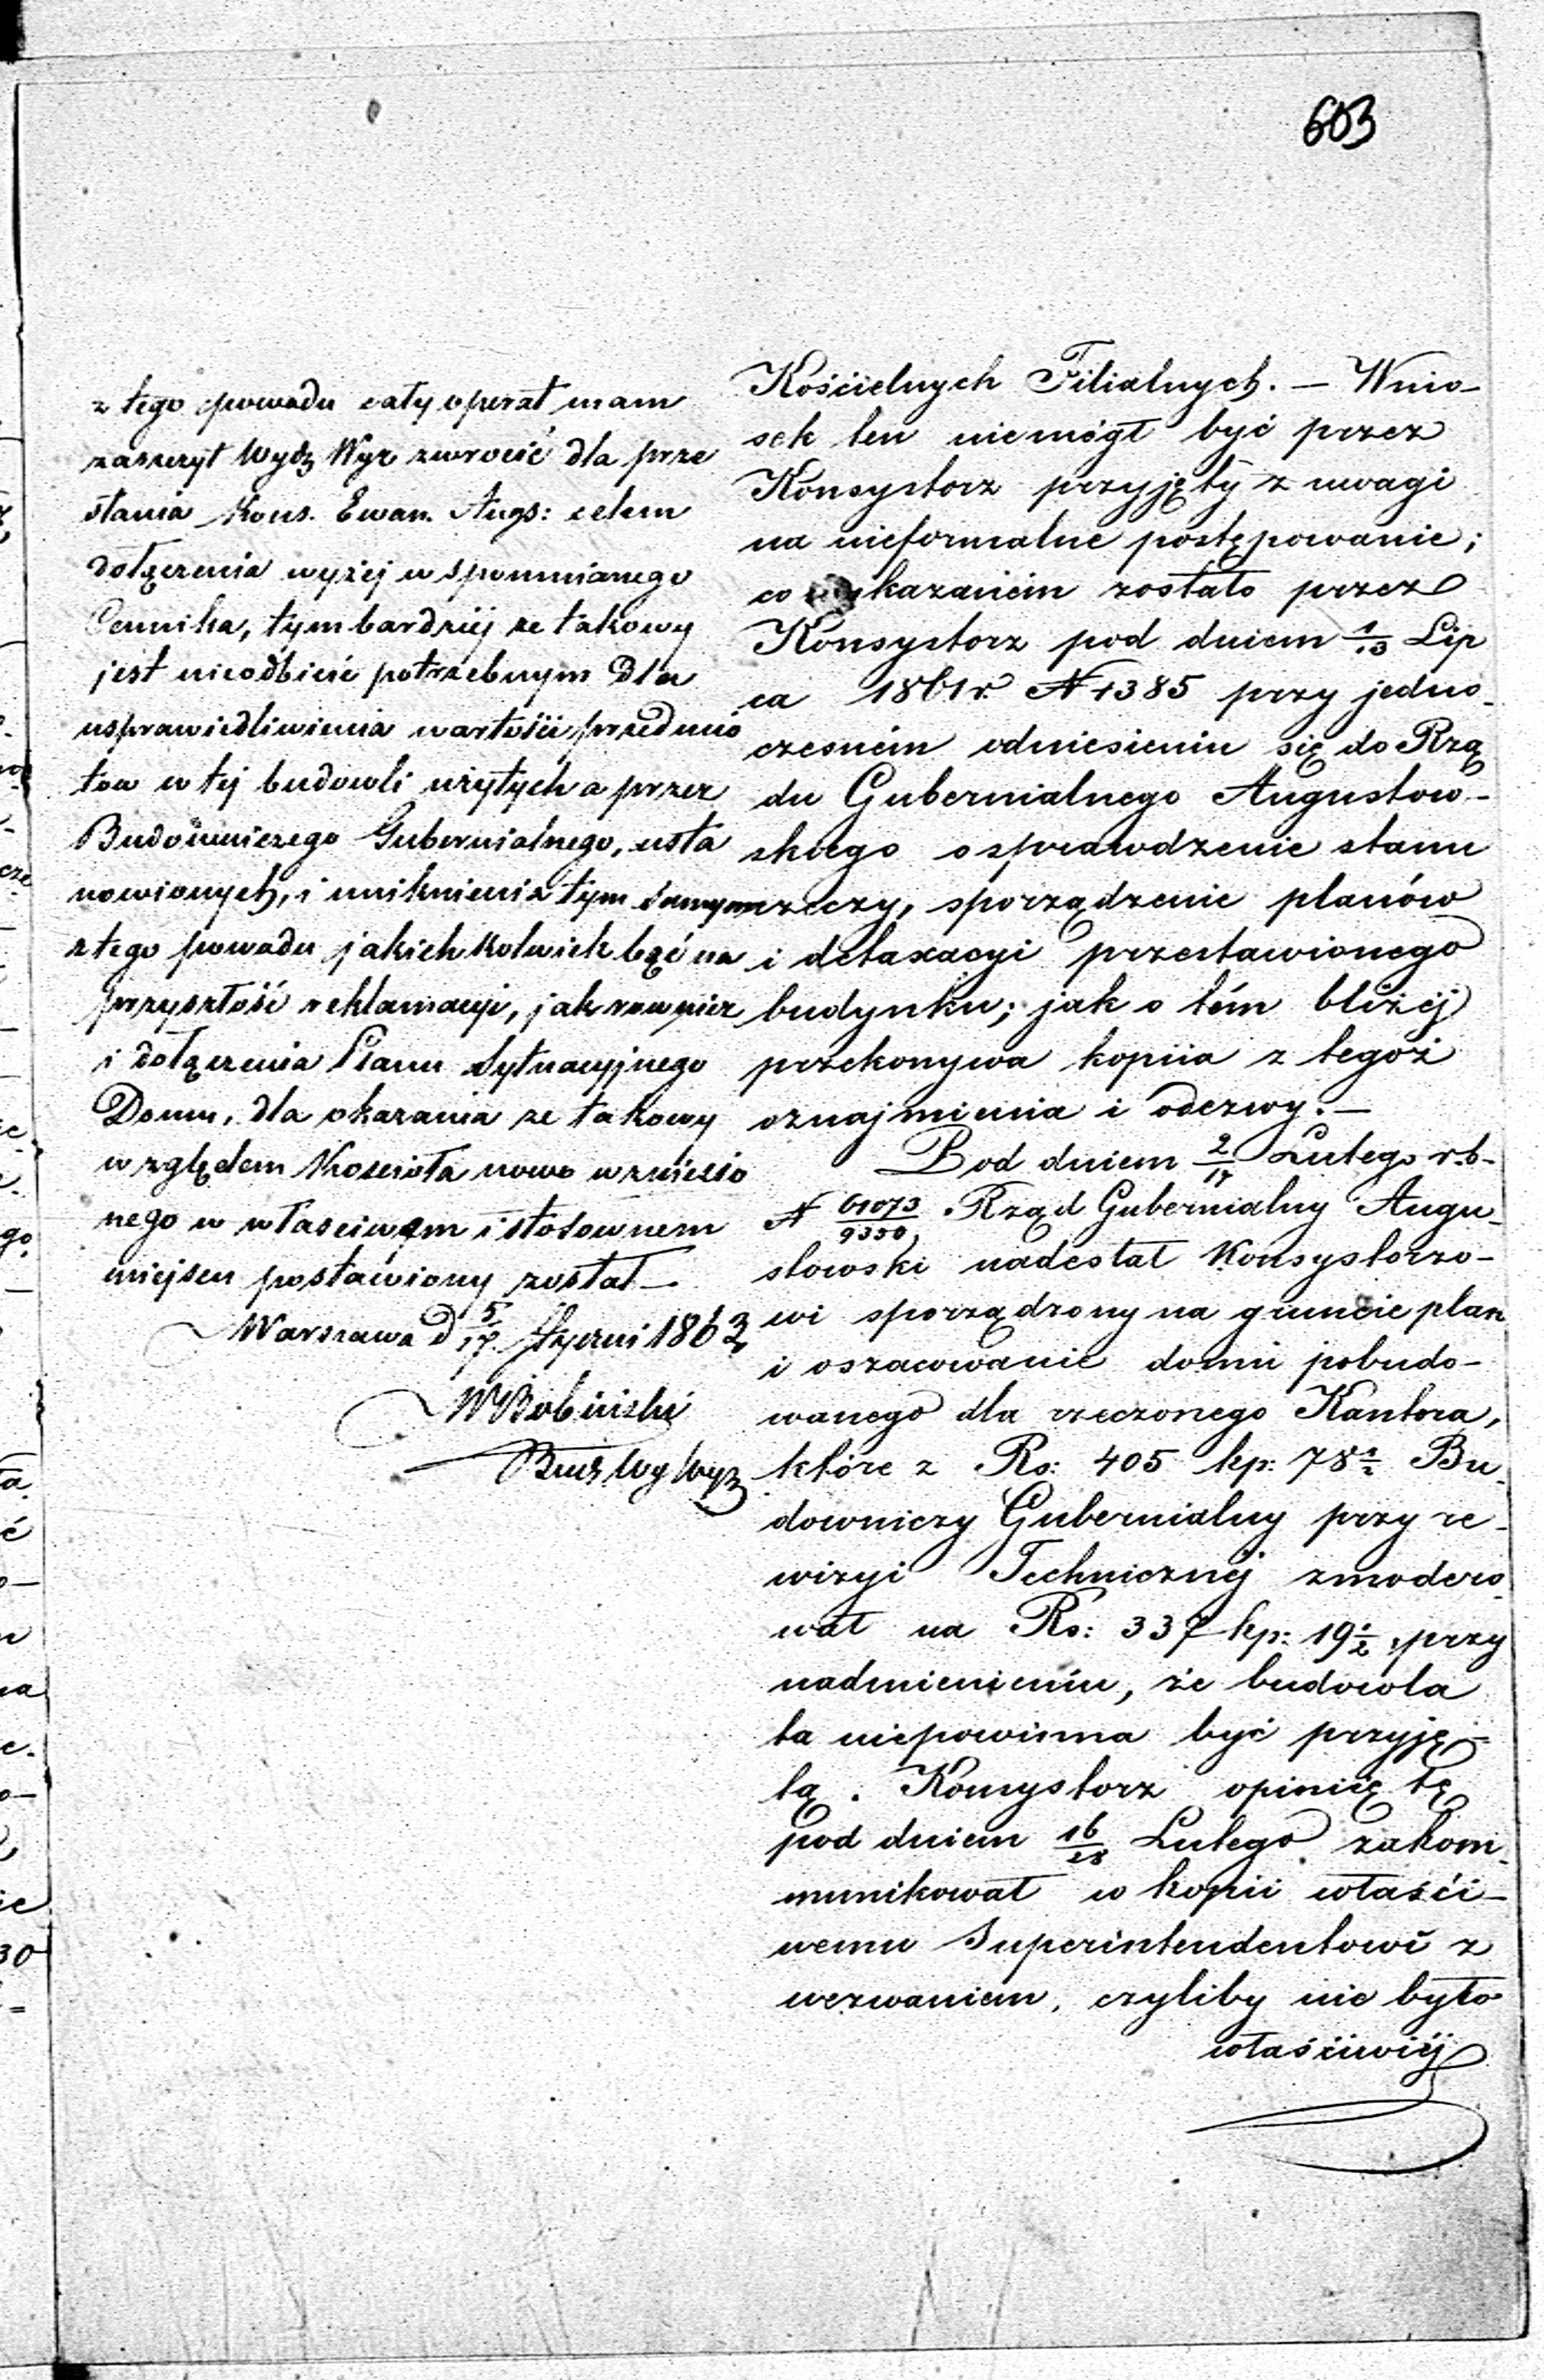 603
z tego powodu cały operat mam
zaszczyt Wydz Wyz zwrócić dla prze
słania Kons. Ewan. Augs: celem
dołączenia wyżej wspomnianego
Cennika, tym bardziej że takowy
jest nieodbicie potrzebnym dla
usprawiedliwienia wartości przedmio
tów w tej budowli użytych a przez
Budowniczego Gubernialnego, usta
nowionych, i uniknienia tym samym
z tego powodu jakichkolwiek bądź na
przyszłość reklamacyi, jak rownież
i dołączenia Planu Sytuacyjnego
Domu, dla okazania że takowy
względem Kościoła nowo wzniesio
nego w własciwem i stosownem
miejscu postawiony został —
Warszawa d 5/17 Stycznia 1863
WBobiński
Bud Wy Wyz
Kościelnych Filialnych. — Wnio-
sek ten niemógł być przez
Konsystorz przyjęty z uwagi
na nieformalne postępowanie;
co wykazaném zostało przez
Konsystorz pod dniem 1/13 Lip
ca 1861 r. N 1385 przy jedno-
czesném odniesieniu się do Rzą
du Gubernialnego Augustow-
skiego o sprawdzenie stanu
rzeczy, sporządzenie planów
i detaxacyi przestawionego
budynku; jak o tém bliżéj
przekonywa kopiia z tegoż
oznajmienia i odezwy. —
Pod dniem 2/14 Lutego r.b-
N 61073/9350, Rząd Gubernialny Augu-
stowski nadesłał Konsystorzo-
wi sporządzony na gruncie plan
i oszacowanie domu pobudo-
wanego dla rzeczonego Kantora,
które z Rs: 405 kp: 78 1/2 Bu-
downiczy Gubernialny przy re-
wizyi Technicznéj zmodero-
wał na Rs: 337 kp: 19 1/2, przy
nadmienieniu, że budowla
ta niepowinna być przyję-
tą. Konsystorz opinię tę
pod dniem 16/28 Lutego zakom-
munikował w kopii właści-
wemu Superintendentowi z
wezwaniem, czyliby nie było
właściwiéj